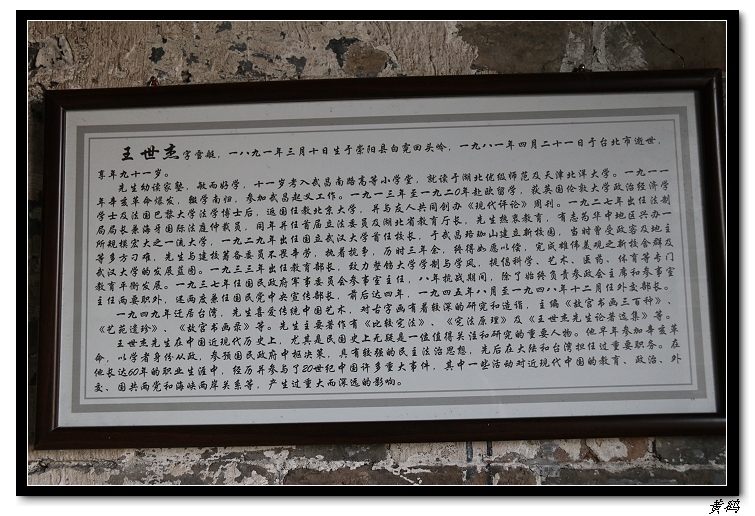 王世杰字雪艇，一八九一年三月十日生于崇阳县白霓回头岭，一九八一年四月二十一日于台北市逝世，
享年九十一岁。
先生幼读家塾，敏而好学，十一岁考入武昌南路高等小学堂，就读于湖北优级师范及天津北洋大学。一九一一
年辛亥革命爆发，辍学南归，参加武昌起义工作。一九一三年至一九二0年赴欧留学，获英国伦敦大学政治经济学
学士及法国巴黎大学法学博士后，返国任教北京大学，并与友人共同创办《现代评论》周刊。一九二七年出任法制
局局长兼海牙国际法庭仲裁员，同年并任首届立法委员及湖北省教育厅长，先生热衷教育，有志为华中地区兴办一
所规模宏大之一流大学，一九二九年出任国立武汉大学首任校长，于武昌珞珈山建立新校园，当时曾受政客及地主
等多方刁难，先生与建校筹备委员不畏艰辛，执着抗争，历时三年余，终得如愿以偿，完成雄伟美观之新校舍群及
武汉大学的发展蓝图。一九三三年出任教育部长，致力整饬大学学制与学风，提倡科学、艺术、医药、体育等专门
教育平衡发展。一九三七年任国民政府军事委员会参事室主任，八年抗战期间，除了始终负责参政会主席和参事室
主任两要职外，还两度兼任国民党中央宣传部长，前后达四年，一九四五年八月至一九四八年十二月任外交部长。
一九四九年迁居台湾，先生喜爱传统中国艺术，对古字画有着较深的研究和造诣，主编《故宫书画三百种》、
《艺苑遗珍》、《故宫书画录》等。先生主要著作有《比较宪法》、《宪法原理》及《王世杰先生论著选集》等。
王世杰先生在中国近现代历史上，尤其是民国史上无疑是一位值得关注和研究的重要人物。他早年参加辛亥革
命，以学者身份从政，参预国民政府中枢决策，具有较强的民主法治思想，先后在大陆和台湾担任过重要职务。在
他长达60年的职业生涯中，经历并参与了20世纪中国许多重大事件，其中一些活动对近现代中国的教育、政治、外
交、国共两党和海峡两岸关系等，产生过重大而深远的影响。
黄鸥